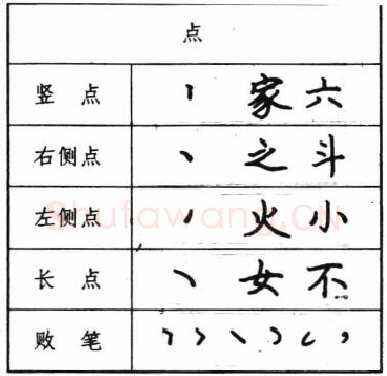 点
竖点 家六
右侧点 之斗
左侧点 火小
长点 女不
败笔
Shufawang.CN